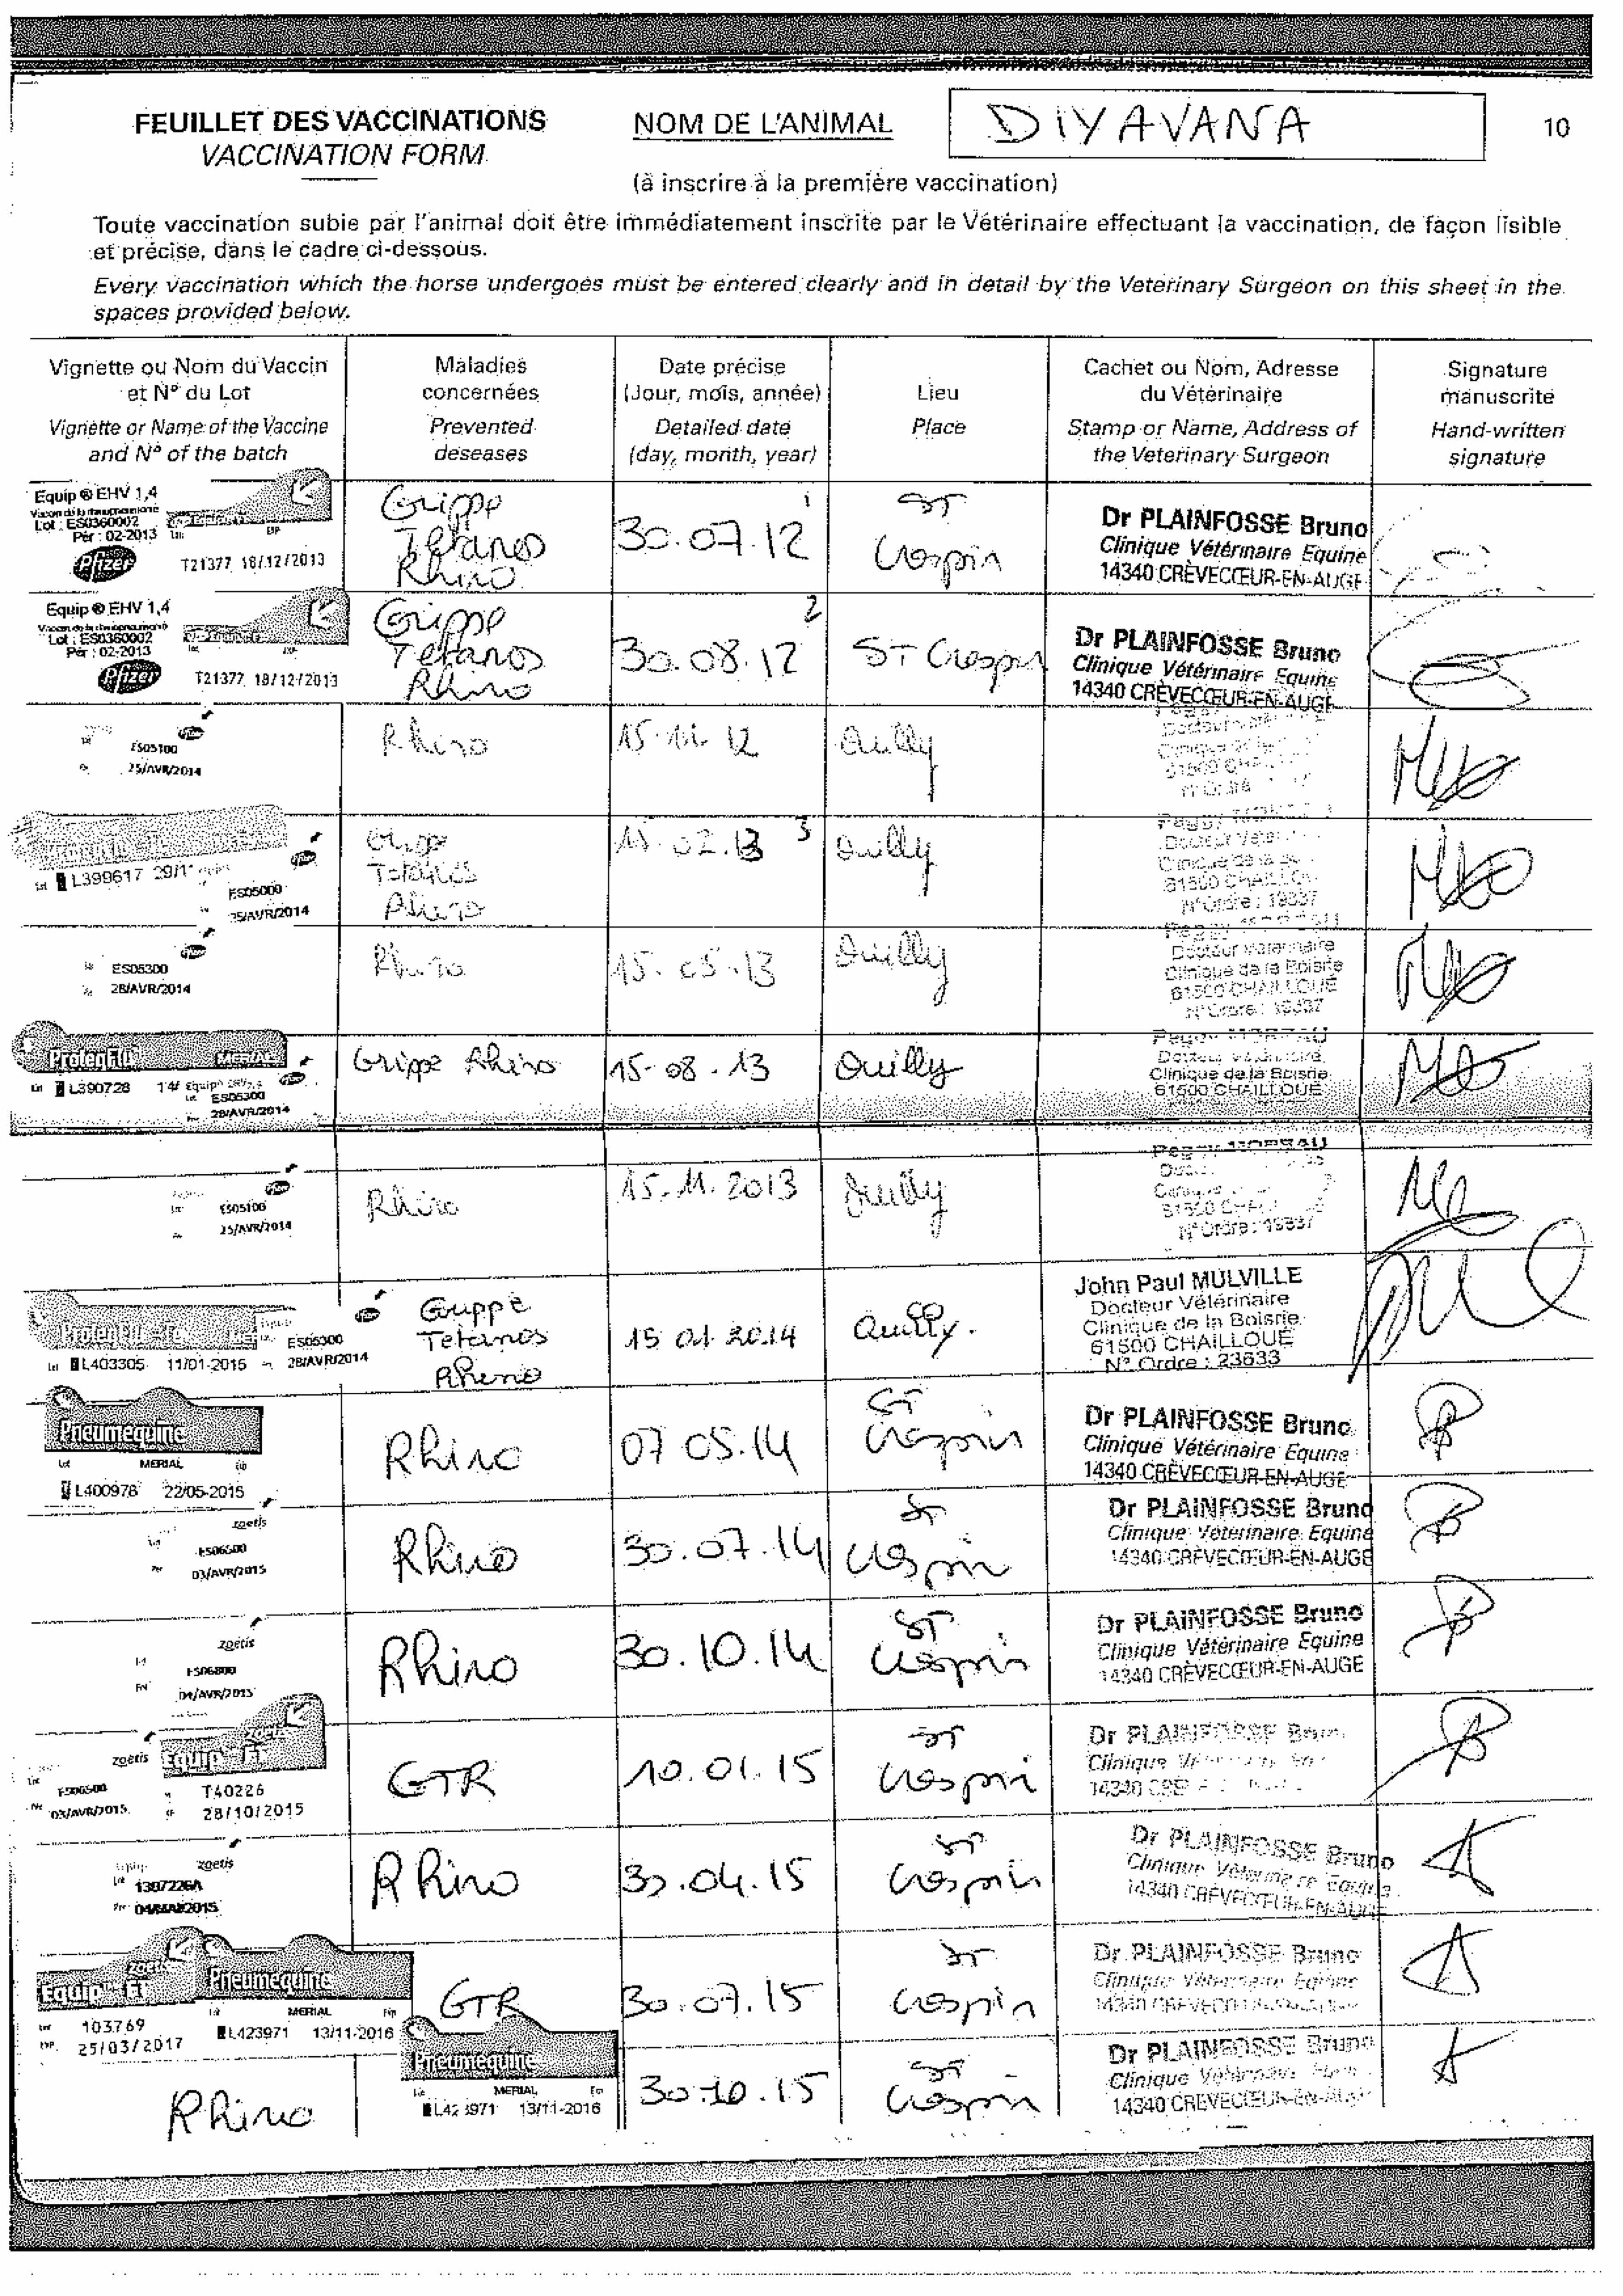 FEUILLET DES VACCINATIONS
VACCINATION FORM
NOM DE L'ANIMAL
DIYAVANA
10
(à inscrire à la première vaccination)
Toute vaccination subie par l'animal doit être immédiatement inscrite par le Vétérinaire effectuant la vaccination, de façon lisible
et précise, dans le cadre ci-dessous.
Every vaccination which the horse undergoes must be entered clearly and in detail by the Veterinary Surgeon on this sheet in the
spaces provided below.
Vignette ou Nom du Vaccin
et N° du Lot
Vignette or Name of the Vaccine
and N° of the batch
Maladies
concernées
Prevented
deseases
Date précise
(Jour, mois, année)
Detailed date
(day, month, year)
Lieu
Place
Cachet ou Nom, Adresse
du Vétérinaire
Stamp or Name, Address of
the Veterinary Surgeon
Signature
manuscrite
Hand-written
signature
Equip ® EHV 1,4
Lot : ES0360002
Pér : 02-2013
Pfizer
T21377 18/12/2013
Grippe
Tétanos
Rhino
30.07.12
1
ST
Crespin
Dr PLAINFOSSE Bruno
Clinique Vétérinaire Equine
14340 CRÈVECŒUR-EN-AUGE
Equip ® EHV 1,4
Lot : ES0360002
Pér : 02-2013
Pfizer
T21377 18/12/2013
Grippe
Tétanos
Rhino
30.08.12
2
ST Crespin
Dr PLAINFOSSE Bruno
Clinique Vétérinaire Equine
14340 CRÈVECŒUR-EN-AUGE
ES05100
25/AVR/2014
Rhino
15.11.12
Ouilly
61500
L399617
ES05000
25/AVR/2014
Grippe
Tétanos
Rhino
15.02.13
3
Ouilly
Docteur
Clinique de la
61500
N° Ordre : 19337
ES05300
28/AVR/2014
Rhino
15.05.13
Ouilly
Docteur Vétérinaire
Clinique de la Boisrie
61500 CHAILLOUÉ
N° Ordre : 19337
ProteqFlu
MERIAL
Lot L390728
ES05300
28/AVR/2014
Grippe Rhino
15.08.13
Ouilly
Peggy MOREAU
Docteur Vétérinaire
Clinique de la Boisrie
61500 CHAILLOUÉ
ES05100
25/AVR/2014
Rhino
15.11.2013
Ouilly
Peggy MOREAU
61500
N° Ordre : 19337
ProteqFlu-Te
Lot L403305 11/01-2015
ES05300
28/AVR/2014
Grippe
Tétanos
Rhino
15 01 2014
Ouilly.
John Paul MULVILLE
Docteur Vétérinaire
Clinique de la Boisrie
61500 CHAILLOUÉ
N° Ordre : 23633
Pneumequine
Lot MERIAL Exp
L400978 22/05-2015
Rhino
07 05.14
ST
Crespin
Dr PLAINFOSSE Bruno
Clinique Vétérinaire Equine
14340 CRÈVECŒUR-EN-AUGE
zoetis
ES06500
03/AVR/2015
Rhino
30.07.14
ST
Crespin
Dr PLAINFOSSE Bruno
Clinique Vétérinaire Equine
14340 CRÈVECŒUR-EN-AUGE
zoetis
ES06800
04/AVR/2015
Rhino
30.10.14
ST
Crespin
Dr PLAINFOSSE Bruno
Clinique Vétérinaire Equine
14340 CRÈVECŒUR-EN-AUGE
zoetis
ES06500
03/AVR/2015
zoetis
Equip™ FT
T40226
28/10/2015
GTR
10.01.15
ST
Crespin
Dr PLAINFOSSE
Clinique
14340
zoetis
1307226A
Rhino
30.04.15
ST
Crespin
Dr PLAINFOSSE Bruno
Clinique Vétérinaire Equine
14340 CRÈVECŒUR-EN-AUGE
zoetis
Equip™ FT
103769
25/03/2017
Pneumequine
Lot MERIAL Exp
L423971 13/11-2016
GTR
30.07.15
ST
Crespin
Dr PLAINFOSSE Bruno
Clinique Vétérinaire Equine
Rhino
Pneumequine
MERIAL
13/11-2016
30.10.15
ST
Crespin
Dr PLAINFOSSE Bruno
Clinique Vétérinaire
14340 CRÈVECŒUR-EN-AUGE